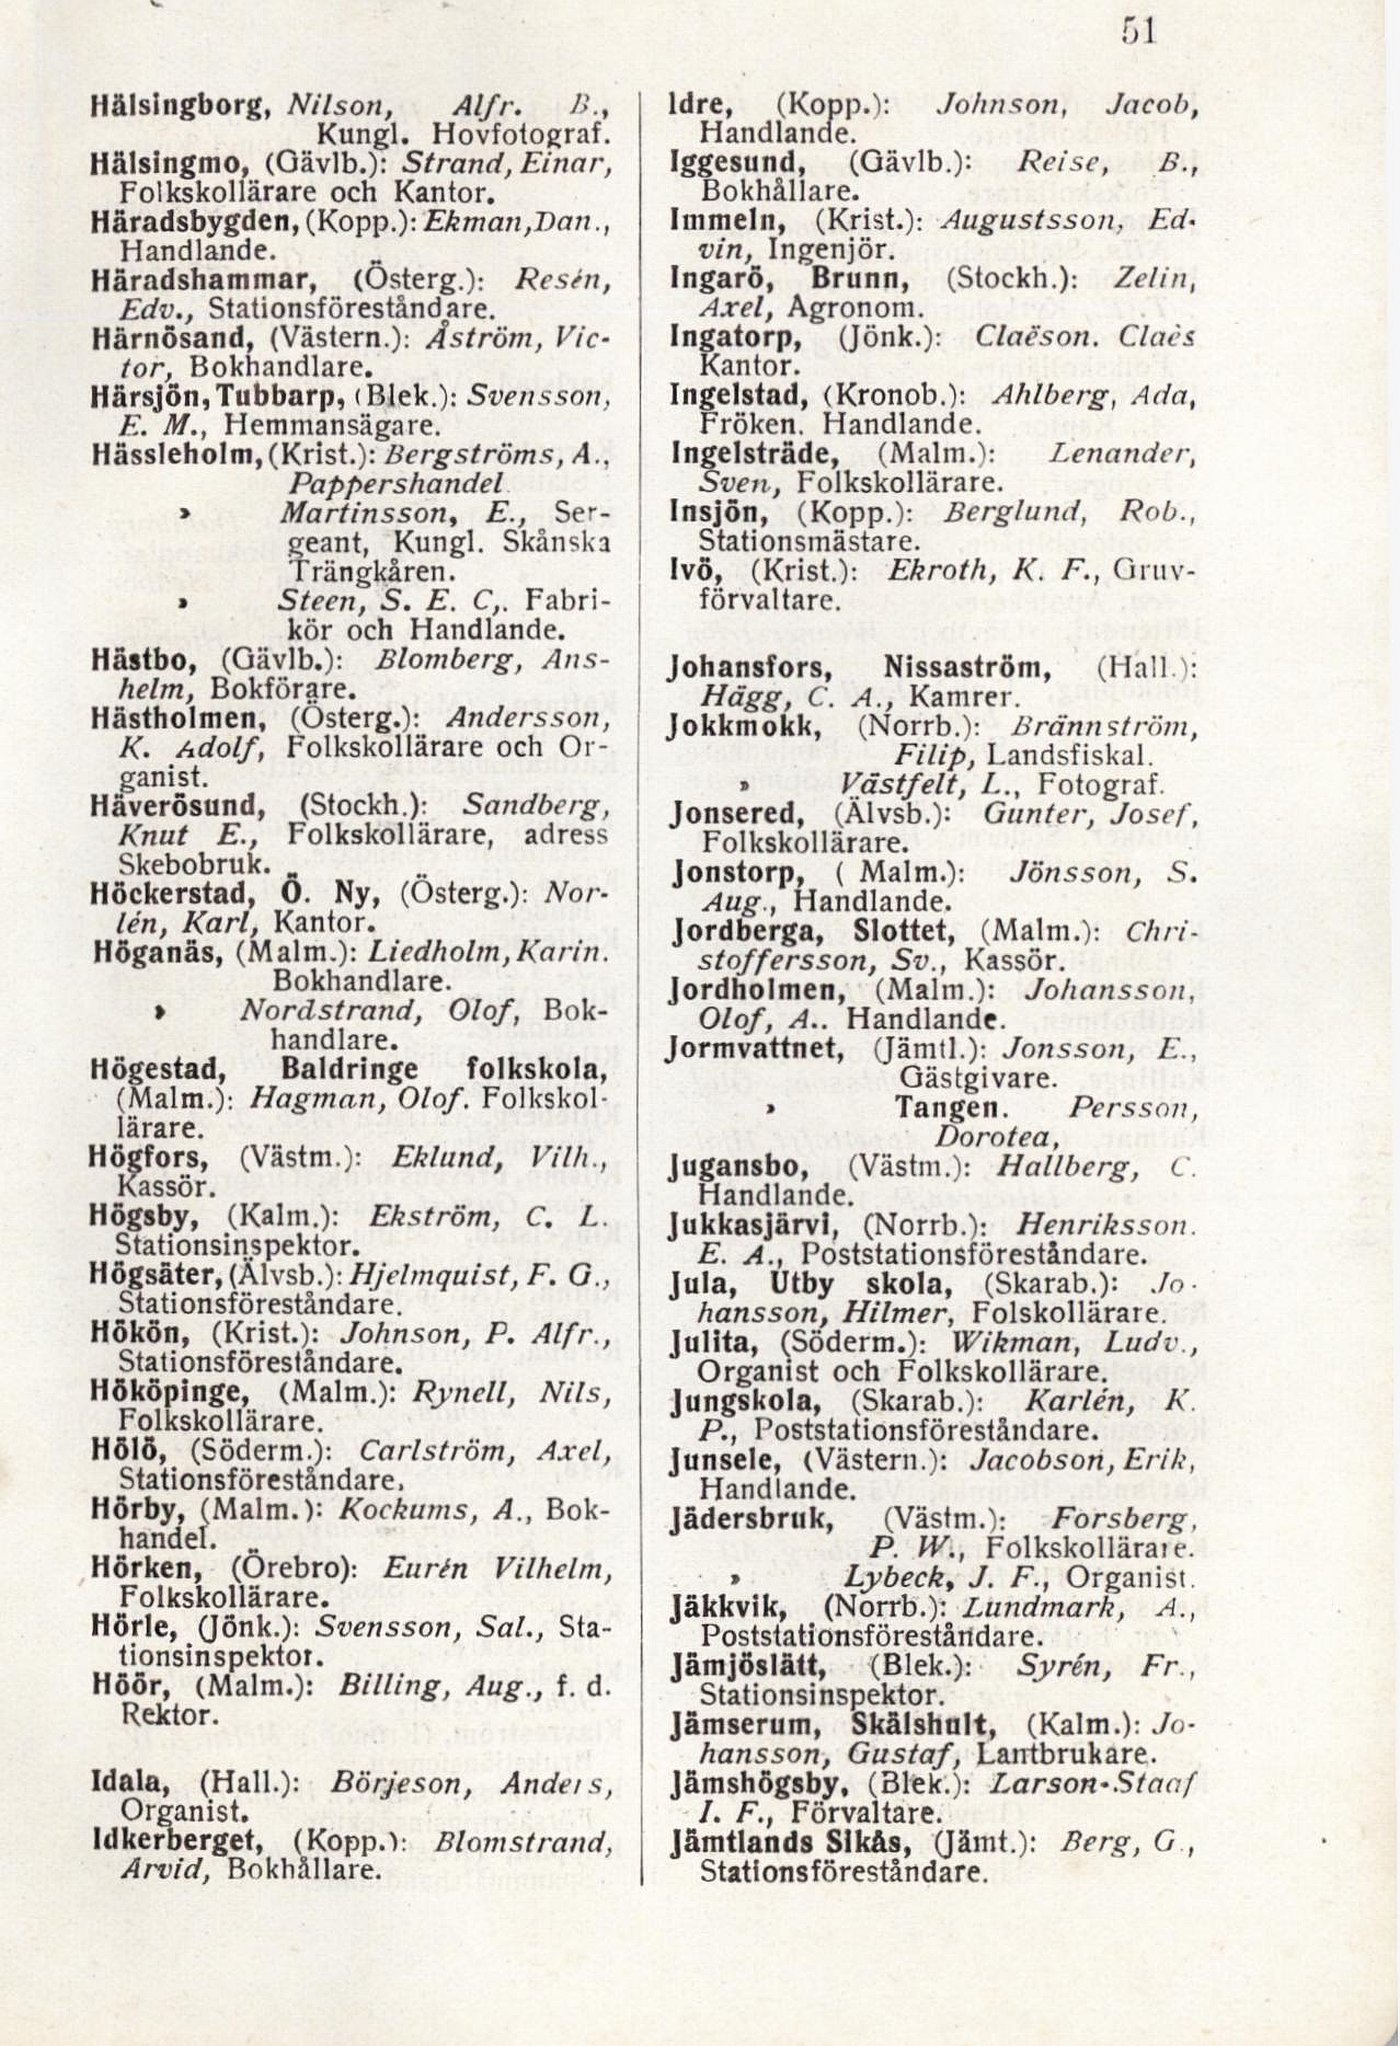 51
Hälsingborg, Nilson, Alfr. B.,
Kungl. Hovfotograf.
Hälsingmo, (Gävlb.): Strand, Einar,
Folkskollärare och Kantor.
Häradsbygden, (Kopp.): Ekman, Dan.,
Handlande.
Häradshammar, (Österg.): Resén,
Edv., Stationsföreståndare.
Härnösand, (Västern.): Åström, Vic-
tor, Bokhandlare.
Härsjön, Tubbarp, (Blek.): Svensson,
E. M., Hemmansägare.
Hässleholm, (Krist.): Bergströms, A.,
Pappershandel.
» Martinsson, E., Ser-
geant, Kungl. Skånska
Trängkåren.
» Steen, S. E. C,. Fabri-
kör och Handlande.
Hästbo, (Gävlb.): Blomberg, Ans-
helm, Bokförare.
Hästholmen, (Österg.): Andersson,
K. Adolf, Folkskollärare och Or-
ganist.
Häverösund, (Stockh.): Sandberg,
Knut E., Folkskollärare, adress
Skebobruk.
Höckerstad, Ö. Ny, (Österg.): Nor-
lén, Karl, Kantor.
Höganäs, (Malm.): Liedholm, Karin.
Bokhandlare.
» Nordstrand, Olof, Bok-
handlare.
Högestad, Baldringe folkskola,
(Malm.): Hagman, Olof. Folkskol-
lärare.
Högfors, (Västm.): Eklund, Vilh.,
Kassör.
Högsby, (Kalm.): Ekström, C. L.
Stationsinspektor.
Högsäter, (Älvsb.): Hjelmquist, F. G.,
Stationsföreståndare.
Hökön, (Krist.): Johnson, P. Alfr.,
Stationsföreståndare.
Hököpinge, (Malm.): Rynell, Nils,
Folkskollärare.
Hölö, (Söderm.): Carlström, Axel,
Stationsföreståndare.
Hörby, (Malm.): Kockums, A., Bok-
handel.
Hörken, (Örebro): Eurén Vilhelm,
Folkskollärare.
Hörle, (Jönk.): Svensson, Sal., Sta-
tionsinspektor.
Höör, (Malm.): Billing, Aug., f. d.
Rektor.
Idala, (Hall.): Börjeson, Anders,
Organist.
Idkerberget, (Kopp.): Blomstrand,
Arvid, Bokhållare.
Idre, (Kopp.): Johnson, Jacob,
Handlande.
Iggesund, (Gävlb.): Reise, B.,
Bokhållare.
Immeln, (Krist.): Augustsson, Ed-
vin, Ingenjör.
Ingarö, Brunn, (Stockh.): Zelin,
Axel, Agronom.
Ingatorp, (Jönk.): Claëson. Claès
Kantor.
Ingelstad, (Kronob.): Ahlberg, Ada,
Fröken. Handlande.
Ingelsträde, (Malm.): Lenander,
Sven, Folkskollärare.
Insjön, (Kopp.): Berglund, Rob.,
Stationsmästare.
Ivö, (Krist.): Ekroth, K. F., Gruv-
förvaltare.
Johansfors, Nissaström, (Hall.):
Hägg, C. A., Kamrer.
Jokkmokk, (Norrb.): Brännström,
Filip, Landsfiskal.
» Västfelt, L., Fotograf.
Jonsered, (Älvsb.): Gunter, Josef,
Folkskollärare.
Jonstorp, ( Malm.): Jönsson, S.
Aug., Handlande.
Jordberga, Slottet, (Malm.): Chri-
stoffersson, Sv., Kassör.
Jordholmen, (Malm.): Johansson,
Olof, A.. Handlande.
Jormvattnet, (Jämtl.): Jonsson, E.,
Gästgivare.
» Tangen. Persson,
Dorotea,
Jugansbo, (Västm.): Hallberg, C.
Handlande.
Jukkasjärvi, (Norrb.): Henriksson.
E. A., Poststationsföreståndare.
Jula, Utby skola, (Skarab.): Jo-
hansson, Hilmer, Folskollärare.
Julita, (Söderm.): Wikman, Ludv.,
Organist och Folkskollärare.
Jungskola, (Skarab.): Karlén, K.
P., Poststationsföreståndare.
Junsele, (Västern.): Jacobson, Erik,
Handlande.
Jädersbruk, (Västm.): Forsberg,
P. W., Folkskollärare.
» Lybeck, J. F., Organist.
Jäkkvik, (Norrb.): Lundmark, A.,
Poststationsföreståndare.
Jämjöslätt, (Blek.): Syrén, Fr.,
Stationsinspektor.
Jämserum, Skälshult, (Kalm.): Jo-
hansson, Gustaf, Lantbrukare.
Jämshögsby, (Blek.): Larson-Staaf
I. F., Förvaltare.
Jämtlands Sikås, (Jämt.): Berg, G.,
Stationsföreståndare.